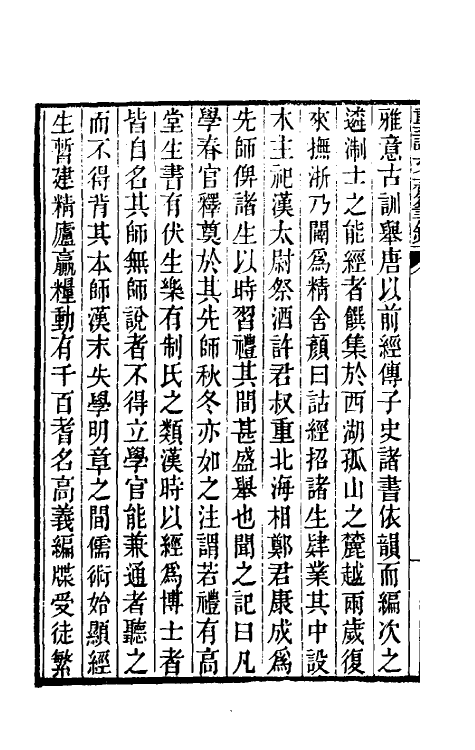 雅意古訓舉唐以前經傳子史諸書依韻而編次之
遴淛士之能經者饌集於西湖孤山之麓越兩歲復
來撫浙乃闢為精舍顏曰詁經招諸生肄業其中設
木主祀漢太尉祭酒許君叔重北海相鄭君康成為
先師俾諸生以時習禮其間甚盛舉也聞之記曰凡
學春官釋奠於其先師秋冬亦如之注謂若禮有高
堂生書有伏生樂有制氏之類漢時以經為博士者
皆自名其師無師說者不得立學官能兼通者聽之
而不得背其本師漢末失學明章之間儒術始顯經
生暫建精廬贏糧動有千百耆名高義編牒受徒繁